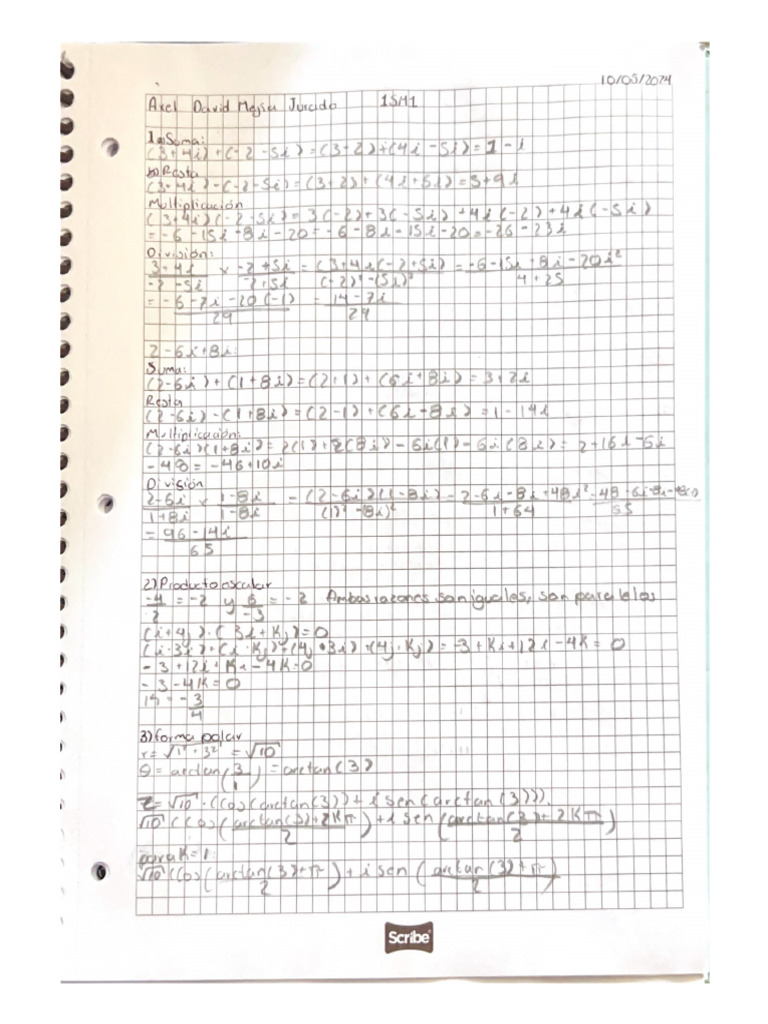 10/05/2024
Axel David Mejia Jurado 1SM1
1a) Suma:
(3+4i)+(-2-5i)=(3-2)+(4i-5i)=1-i
b) Resta
(3+4i)-(-2-5i)=(3+2)+(4i+5i)=5+9i
Multiplicación
(3+4i)(-2-5i)=3(-2)+3(-5i)+4i(-2)+4i(-5i)
=-6-15i-8i-20=-6-8i-15i-20=-26-23i
División:
3+4i/-2-5i x -2+5i/-2+5i = (3+4i(-2+5i)/(-2)²-(5i)² = -6-15i+8i-20i²/4+25
= -6-7i-20(-1)/29 = 14-7i/29
2-6i+8i
Suma:
(2-6i)+(1+8i)=(2+1)+(6i+8i)=3+2i
Resta
(2-6i)-(1+8i)=(2-1)+(6i-8i)=1-14i
Multiplicación:
(2-6i)(1+8i)=2(1)+2(8i)-6i(1)-6i(8i)=2+16i-6i
-48=-46+10i
División
2-6i/1+8i x 1-8i/1-8i = (2-6i)(1-8i)/(1)²-(8i)² = 2-6i-8i+48i²/1+64
= 96-14i/65
2) Producto escalar
-4/2 = -2 y 6/-3 = -2 Ambas razones son iguales, son paralelas
(i+4j)·(3i+Kj)=0
(i·3i)+(i·Kj)+(4j·3i)+(4j·Kj)=-3+Ki+12i-4K=0
-3+12i+Ki-4K=0
-3-4K=0
K=-3/4
3) forma polar
r=√1²+3²=√10
θ=arctan(3/1)=arctan(3)
z=√10·(Cos(arctan(3))+i Sen(arctan(3)))
√10(Cos(arctan(3)+2Kπ/2)+i Sen(arctan(3)+2Kπ/2)
para K=1:
√10(Cos(arctan(3)+π/2)+i sen(arctan(3)+π/2)
Scribe